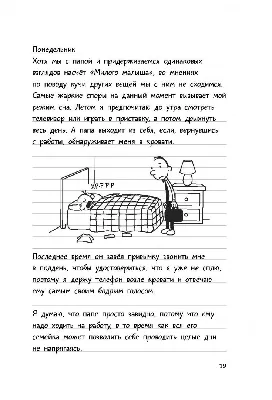 Понедельник
Хоть мы с папой и придерживаемся одинаковых
взглядов насчёт «Милого малыша», во мнениях
по поводу кучи других вещей мы с ним не сходимся.
Самые жаркие споры на данный момент вызывает мой
режим сна. Летом я предпочитаю до утра смотреть
телевизор или играть в приставку, а потом дрыхнуть
весь день. А папа выходит из себя, если, вернувшись
с работы, обнаруживает меня в кровати.
Последнее время он завёл привычку звонить мне
в полдень, чтобы удостовериться, что я уже не сплю,
поэтому я держу телефон возле кровати и отвечаю
ему самым своим бодрым голосом.
Я думаю, что папе просто завидно, потому что ему
надо ходить на работу, в то время как вся его
семейка может позволить себе проводить целые дни
не напрягаясь.
19